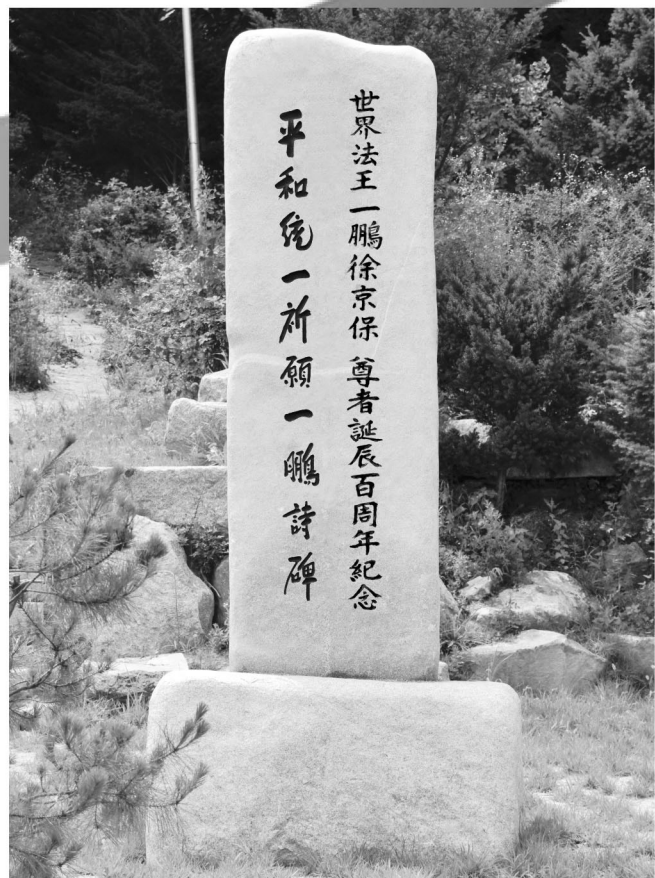 世界法王一鵬徐京保 尊者誕辰百周年紀念
平和統一祈願一鵬詩碑